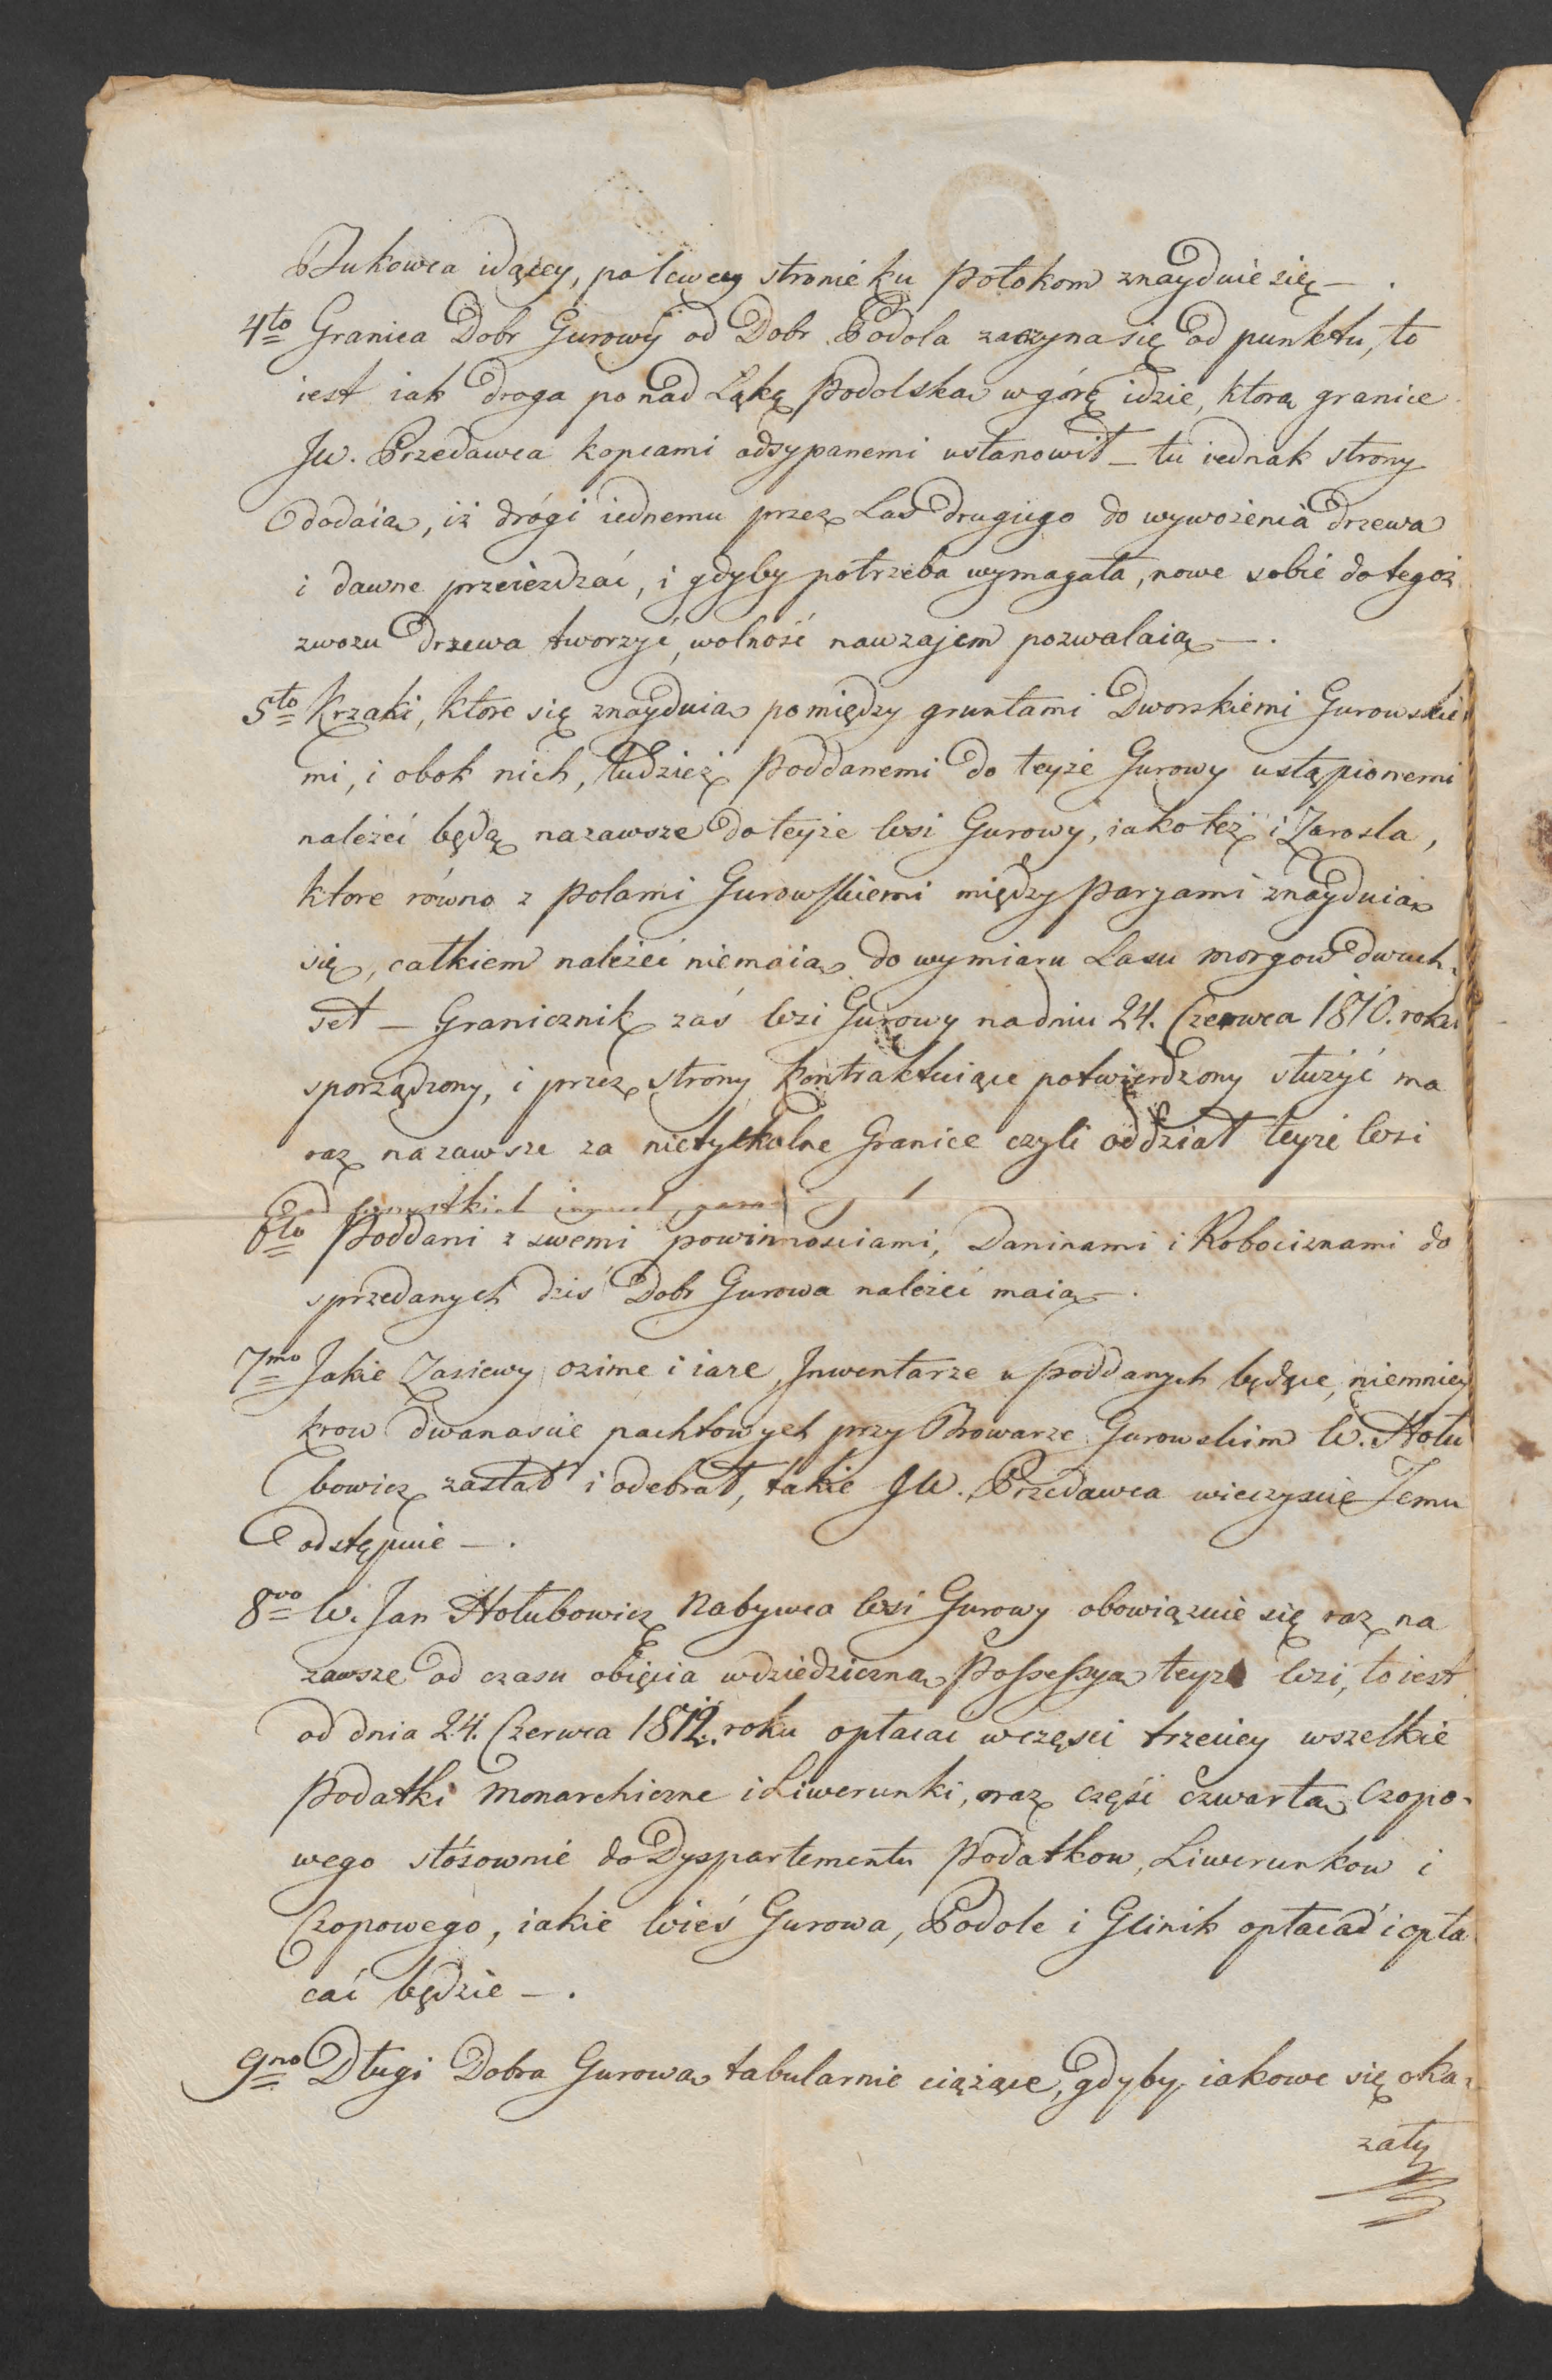 Bukowca idącey, po lewey stronie ku Potokom znayduie się —.
4to Granica Dobr Gurowy od Dobr Podola zaczyna się od punktu, to
iest iak droga po nad Łąkę Podolską w górę idzie, ktorą granice
JW. Przedawca kopcami odsypanemi ustanowił — tu iednak strony
dodaią, iż drógi iednemu przez Las drugiego do wywożenia drzewa
i dawne przeieżdzać, i gdyby potrzeba wymagała, nowe sobie do tegoż
zwozu drzewa tworzyć, wolność nawzajem pozwalaią —.
5to Krzaki, ktore się znayduią pomiędzy gruntami Dworskiemi Gurowskie
mi, i obok nich, tudzież Poddanemi do teyże Gurowy ustąpionemi
należeć będą na zawsze do teyże Wsi Gurowy, iako też i Zarosla,
ktore równo z Polami Gurowskiemi między Paryami znayduią
się, całkiem należeć niemaią do wymiaru Lasu morgow dwuch
set — Granicznik zaś Wsi Gurowy na dniu 24. Czerwca 1810. roku
sporządzony, i przez strony kontraktuiące potwierdzony służyć ma
raz na zawsze za nietykalne Granice czyli oddział teyże Wsi
od wszystkich innych
6to Poddani z swemi powinnosciami, Daninami i Robociznami do
sprzedanych dziś Dobr Gurowa należeć maią —.
7mo Jakie Zasiewy ozime i iare, Inwentarze u Poddanych będące, niemniey
krow dwanascie pachtowych przy Browarze Gurowskim W. Hołu
bowicz zastał i odebrał, takie JW. Przedawca wieczyscie Jemu
odstępuie —.
8vo W. Jan Hołubowicz Nabywca Wsi Gurowy obowiązuie się raz na
zawsze od czasu obięcia w dziedziczną Possessyą teyże Wsi, to iest
od dnia 24. Czerwca 1812. roku opłacac w częsci trzeciey wszelkie
Podatki Monarchiczne i Liwerunki, oraz częsć czwartą Czopo-
wego stósownie do Dyspartementu Podatkow, Liwerunkow i
Czopowego, iakie Wieś Gurowa, Podole i Glinik opłacał i opła
cać będzie —.
9no Długi Dobra Gurowa tabularnie ciążące, gdyby iakowe się oka-
zały